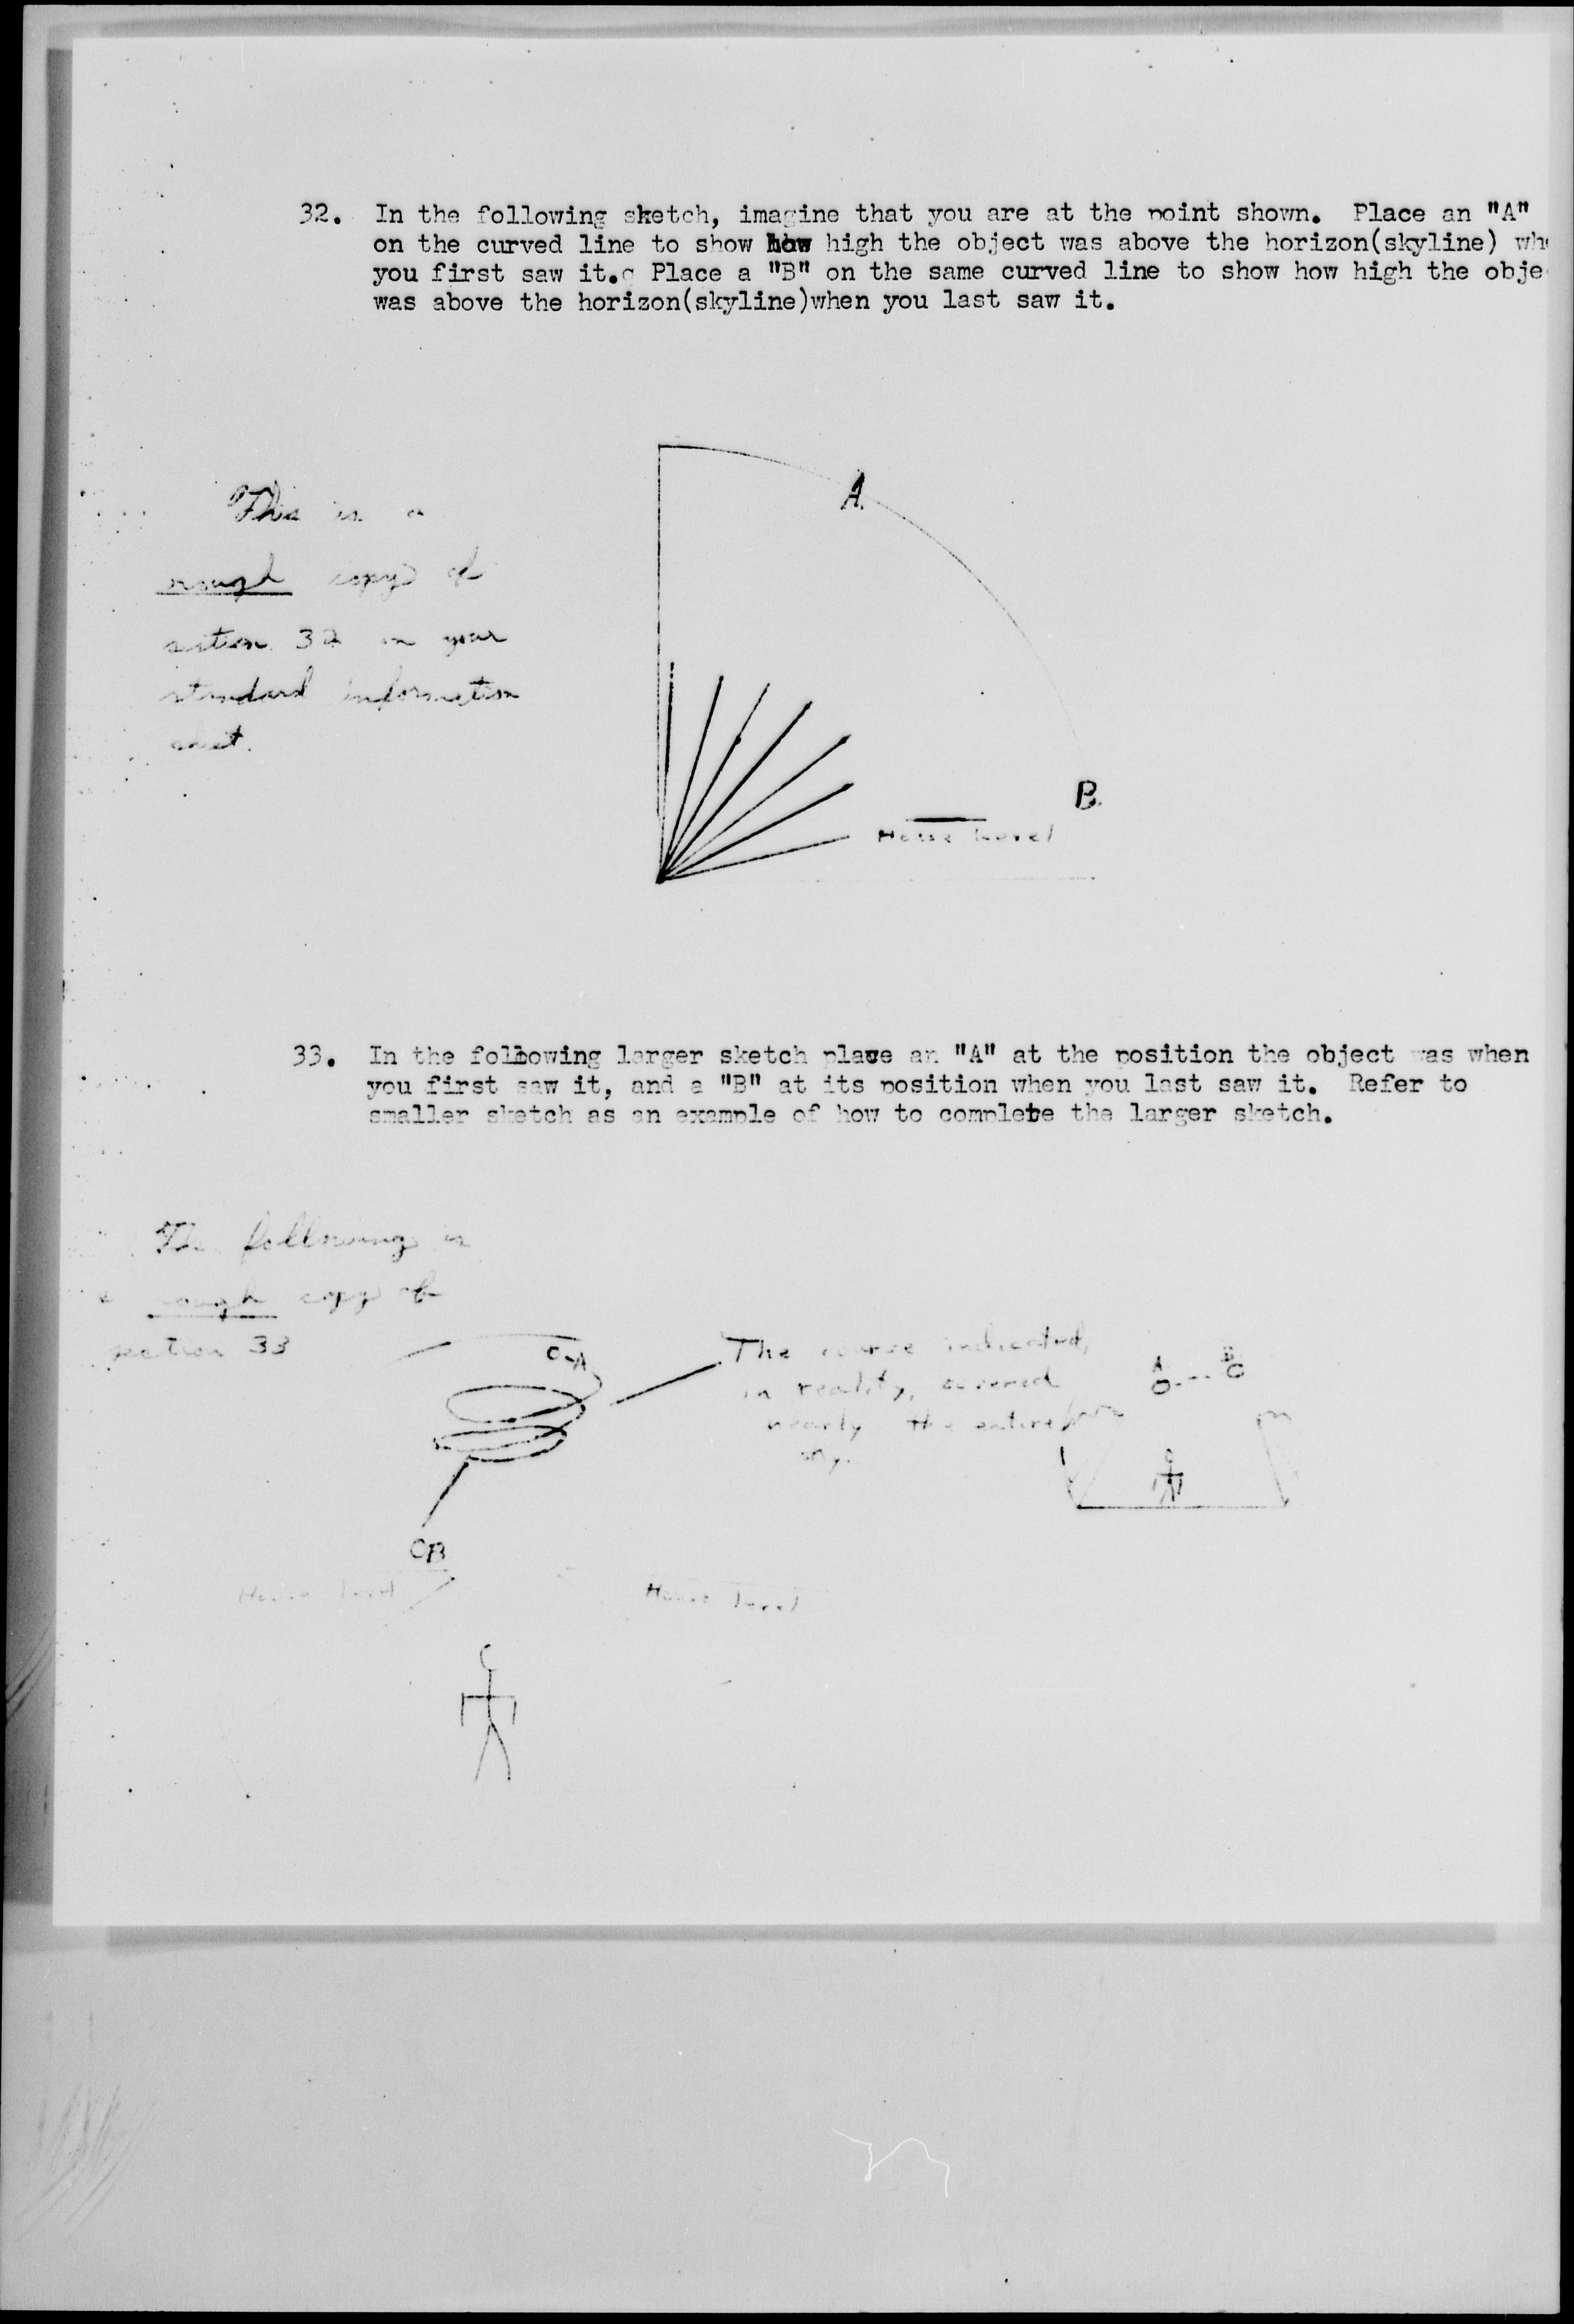 32. In the following sketch, imagine that you are at the point shown. Place an "A"
on the curved line to show how high the object was above the horizon(skyline)
you first saw it. Place a "B" on the same curved line to show how high the
was above the horizon(skyline)when you last saw it.
A.
This is a
rough copy of
section 32 in your
standard information
sheet.
B.
House Level
33. In the following larger sketch place an "A" at the position the object was when
you first saw it, and a "B" at its position when you last saw it. Refer to
smaller sketch as an example of how to complete the larger sketch.
The following is
a rough copy of
section 33
A
The course indicated,
in reality, covered
nearly the entire
sky.
A B
B
House level House level